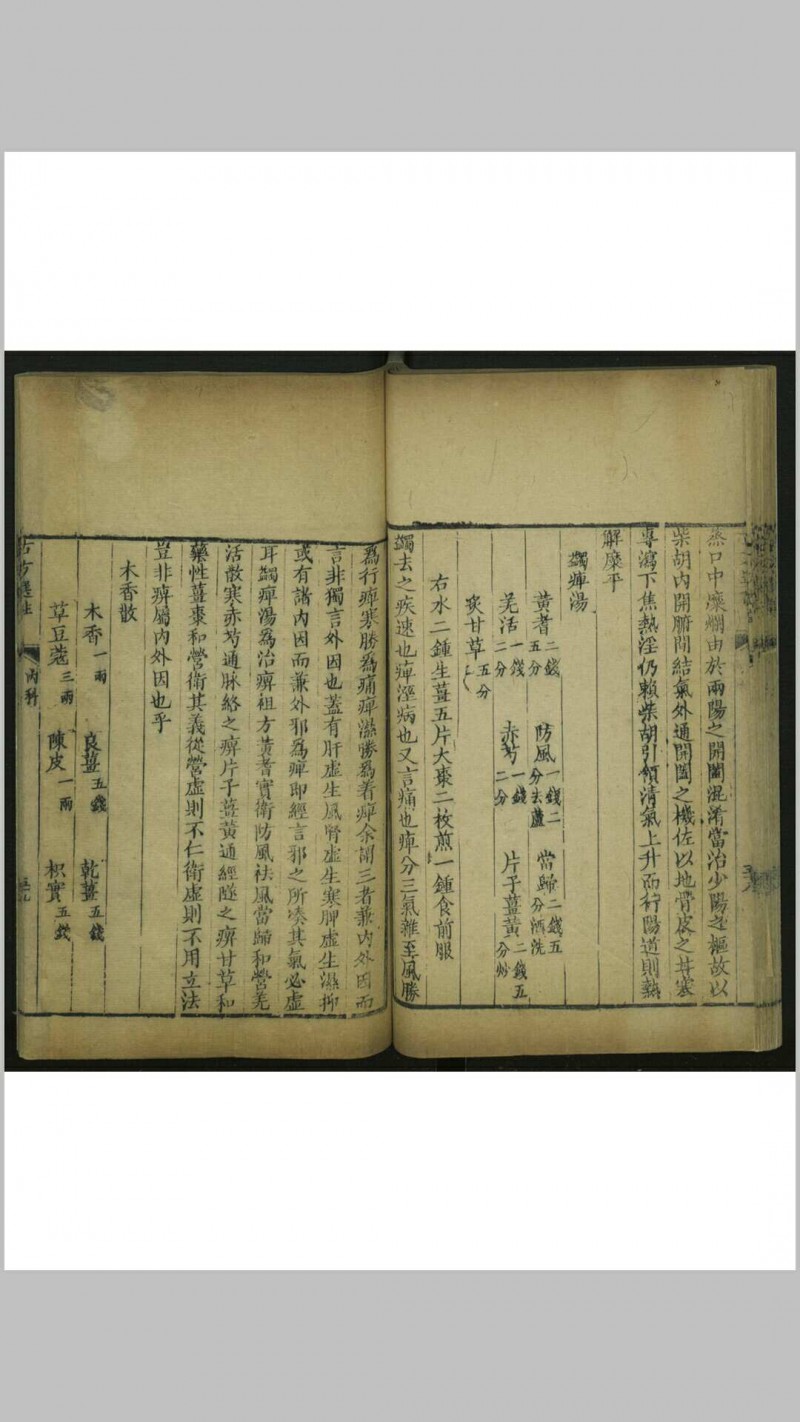 蒸口中糜爛由於兩陽之開闔混淆當治少陽之樞故以
柴胡內開腑間結氣外通開闔之機佐以地骨皮之甘寒
專瀉下焦熱淫仍賴柴胡引領清氣上升而行陽道則熱
解糜平
蠲痺湯
黃耆二錢五分 防風一錢二分去蘆 當歸二錢五分酒洗
羌活一錢二分 赤芍一錢二分 片子薑黃二錢五分炒
炙甘草五分
右水二鍾生薑五片大棗二枚煎一鍾食前服
蠲去之疾速也痺溼病也又言痛也痺分三氣雜至風勝
爲行痺寒勝爲痛痺濕勝爲着痺余謂三者兼內外因而
言非獨言外因也蓋有肝虛生風腎虛生寒脾虛生濕抑
或有諸內因而兼外邪爲痺即經言邪之所凑其氣必虛
耳蠲痺湯爲治痹祖方黃耆實衛防風祛風當歸和營羌
活散寒赤芍通脉絡之痹片子薑黃通經隧之痹甘草和
藥性薑棗和營衛其義從營虛則不仁衛虛則不用立法
豈非痹屬內外因也乎
木香散
木香一兩 良薑五錢 乾薑五錢
草豆蔻三兩 陳皮一兩 枳實五錢
古方選注 內科